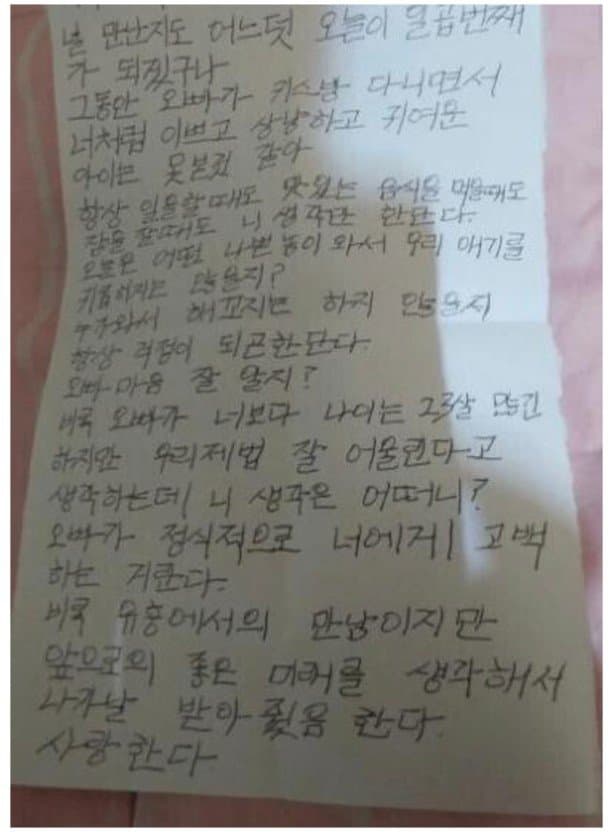 널 만난지도 어느덧 오늘이 일곱번째
가 되겠구나
그동안 오빠가 키스방 다니면서
너처럼 이쁘고 상냥하고 귀여운
아이는 못본것 같아
항상 일을할때도 맛있는 음식을 먹을때도
잠을 잘때도 니 생각만 한단다.
오늘은 어떤 나쁜놈이 와서 우리 애기를
않을지?
누가와서 해꼬지는 하지 않을지
항상 걱정이 되곤한단다.
오빠 마음 잘 알지?
비록 오빠가 너보다 나이는 많긴
하지만 우리제법 잘 어울린다고
생각하는데 니 생각은 어떠니?
오빠가 정식적으로 너에게 고백
하는 거란다.
비록 유흥에서의 만남이지만
앞으로의 좋은 미래를 생각해서
나가날 받아줬음 한다.
사랑한다.